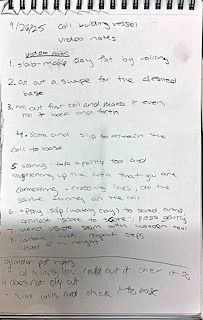 9/26/25 coil building vessel
video notes
video notes
1. slab-make clay flat by rolling
2. cut out a shape for the desired
base
3. roll out first coil and makes it even,
roll it back and forth
4. score and slip to attach the
coil to base
5 scoring - take a pottery tool and
roughening up the area that you are
connecting - crossing lines, do the
same thing on the coil
6. apply slip (watery clay) to scored areas
connect "score to score", press gently
7. blend inside seam with wooden tool
8. continue and repeat steps
about 6 in height
cylinder pot notes
if it is you could cut it. cover it so
it does not dry out
- score coils and stick to base